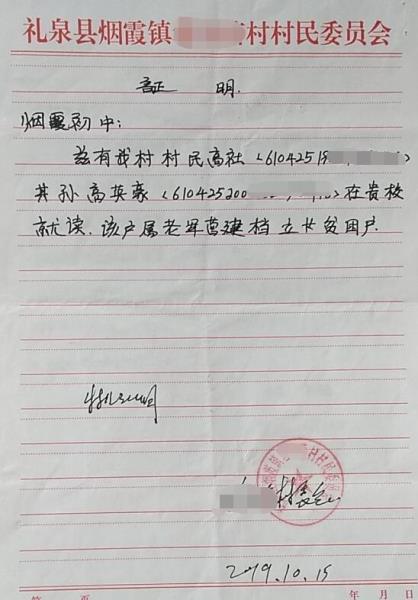 礼泉县烟霞镇 村村民委员会
证 明
烟霞初中:
兹有我村村民高社(61042519
其孙高英豪(610425200 )在贵校
就读.该户属老牌营建档立卡贫困户.
特此证明
村委会
2019.10.15
第 页 年 月 日